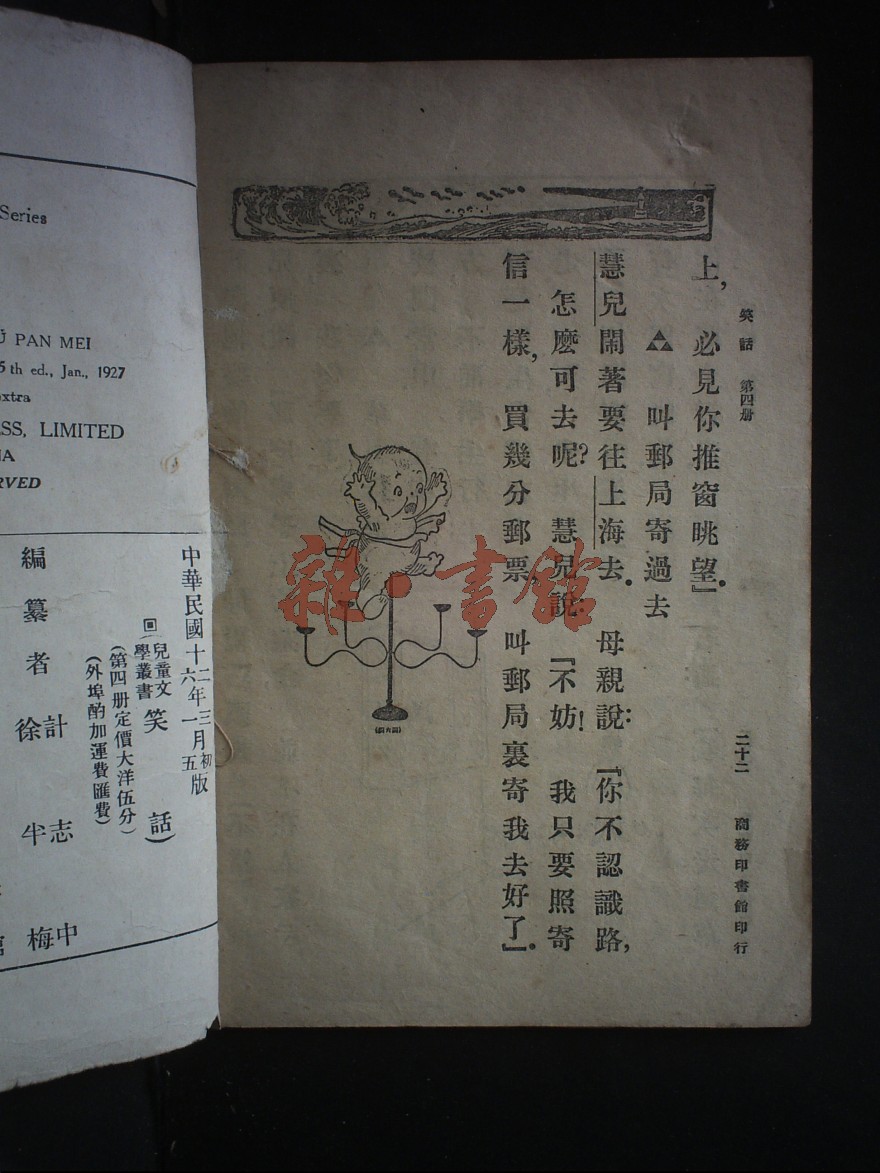 笑話 第四册
二十二
商務印書館印行
上，必見你推窗眺望。」
叫郵局寄過去
慧兒鬧著要往上海去。母親說：『你不認識路，
怎麽可去呢？慧兒說：『不妨！我只要照寄
信一樣，買幾分郵票，叫郵局裏寄我去好了』。
雜·書館
Series
PAN MEI
5th ed., Jan., 1927
extra
SS, LIMITED
NA
RVED
中華民國十二年三月初版
六年一月五
兒童文學叢書 笑話)
(第四册定價大洋伍分)
(外埠酌加運費匯費)
編纂者 計志中
徐半梅
館